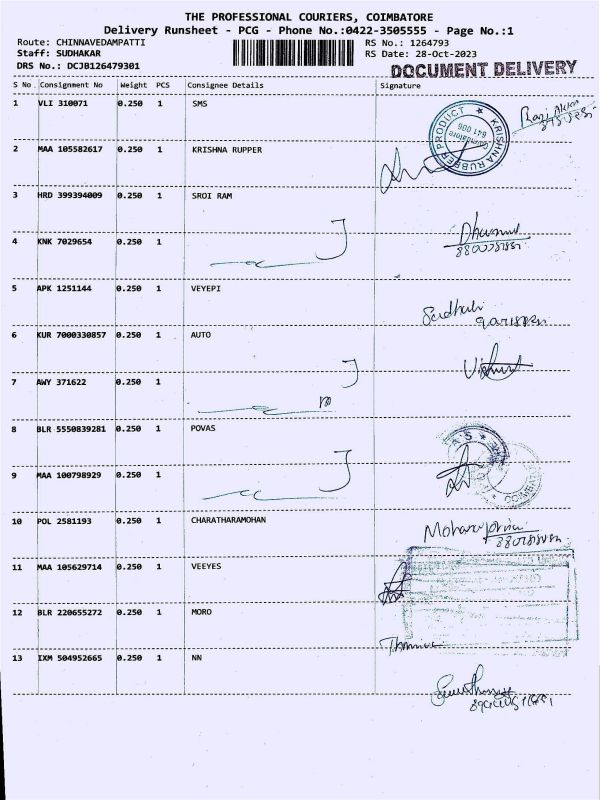 THE PROFESSIONAL COURIERS, COIMBATORE
Delivery Runsheet - PCG - Phone No.:0422-3505555 - Page No.:1
Route: CHINNAVEDAMPATTI
RS No.: 1264793
Staff: SUDHAKAR
RS Date: 28-Oct-2023
DRS No.: DCJB126479301
DOCUMENT DELIVERY
S No. Consignment No Weight PCS Consignee Details Signature
1 VLI 310071 0.250 1 SMS
KRISHNA RUBBER PRODUCT
Coimbatore
641 006
2 MAA 105582617 0.250 1 KRISHNA RUPPER
3 HRD 399394009 0.250 1 SROI RAM
4 KNK 7029654 0.250 1
5 APK 1251144 0.250 1 VEYEPI
6 KUR 7000330857 0.250 1 AUTO
7 AWY 371622 0.250 1
8 BLR 5550839281 0.250 1 POVAS
9 MAA 100798929 0.250 1
10 POL 2581193 0.250 1 CHARATHARAMOHAN
11 MAA 105629714 0.250 1 VEEYES
12 BLR 220655272 0.250 1 MORO
13 IXM 504952665 0.250 1 NN